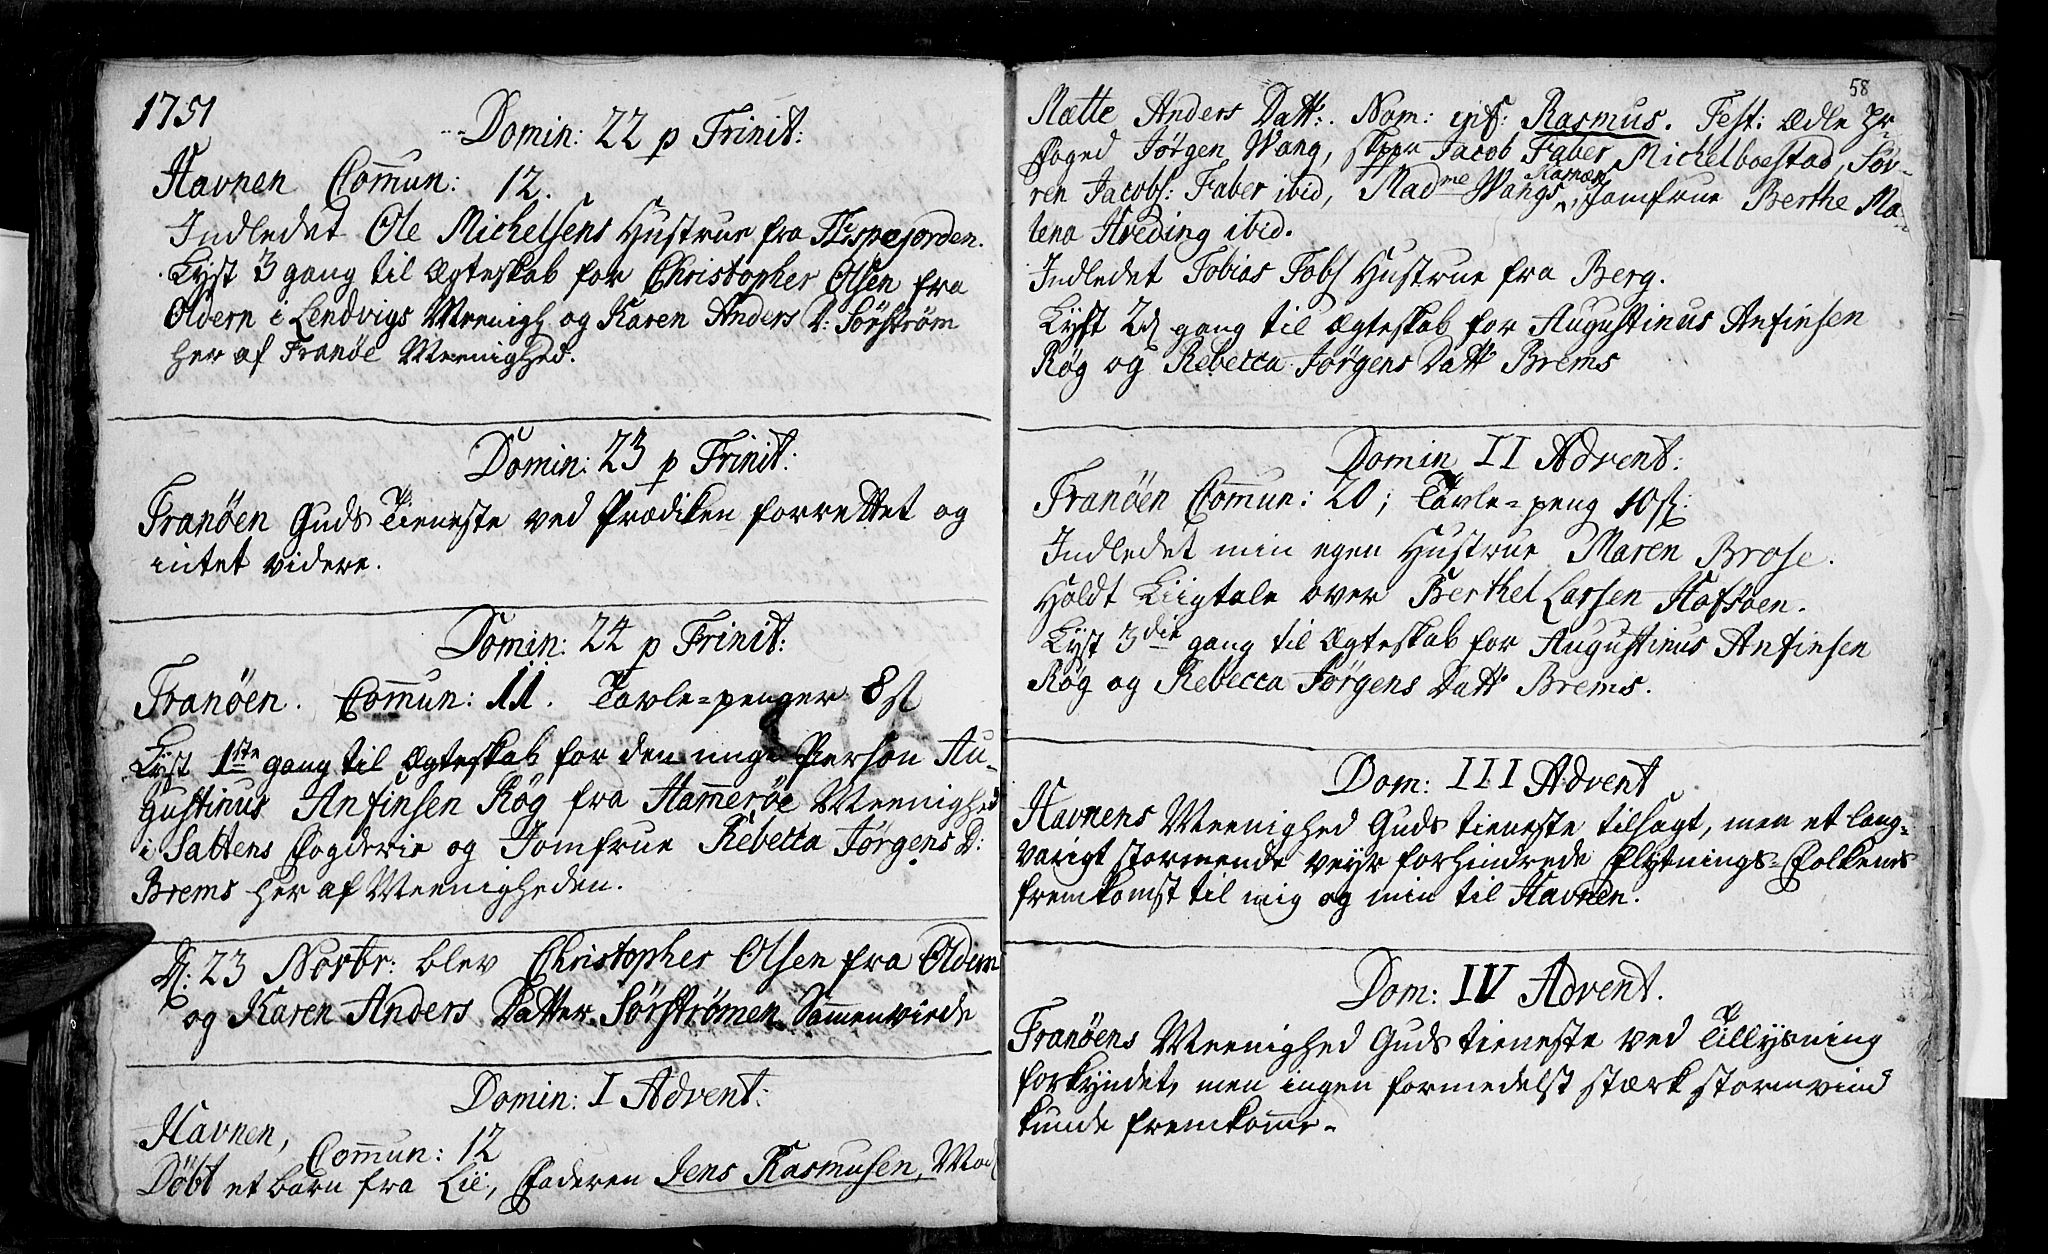 1751
Domin: 22 p Trinit:
Havnen Com̅un: 12.
Indledet Ole Michelsens Hustrue fra Espejorden.
Lyst 3 gang til Ægteskab for Christopher Olsen fra
Oldern i Lendvigs Meenigh og Karen Anders D: Sørstrøm
her af Tranøe Meenighed.
Domin: 23 p Trinit:
Tranöen Guds Tieneste ved Prædiken forrettet og
intet videre.
Domin: 24 p Trinit:
Tranöen. Com̅un: 11. Tavle=penger 8 sl
Lyst 1ste gang til Ægteskab for den unge Person Au-
gustinus Anfinsen Røg fra Ham̅erøe Meenighed
i Saltens Fogderie og Jomfrue Rebecca Jørgens D:
Brems her af Meenigheden.
D: 23 Novbr: blev Christopher Olsen fra Oldern
og Karen Anders Datter Sørstrømen Sam̅enviede
Domin: I Advent:
Havnen,
Com̅un: 12
Döbt et barn fra Lii, Faderen Jens Rasmusen, Mod
58
Mætte Anders Datt:. Nom: inf: Rasmus. Test: ædle Hr
Foged Jørgen Wang, Jacob Faber Michelboestad, Søv-
ren Jacobs: Faber ibid, Madme Wangs, Jomfrue Berthe Ma-
lena Hveding ibid.
Indledet Tobias Tobs Hustrue fra Berg.
Lyst 2d gang til Ægteskab for Augustinus Anfinsen
Røg og Rebecca Jørgens Datt Brems
Domin II Advent:
Tranöen Com̅un: 20; Tavle=peng 10 sl:
Indledet min egen Hustrue Maren Brose.
Holdt Liigtale over Berthel Larsen Hofsøen.
Lyst 3die gang til Ægteskab for Augustinus Anfinsen
Røg og Rebecca Jørgens Datt Brems.
Dom: III Advent
Havnens Meenighed Guds tieneste tilsagt, men et lang=
varigt stormende veyr forhindrede Flytnings=Folkenes
fremkomst til mig og min til Havnen.
Dom: IV Advent.
Tranöens Meenighed Guds tieneste ved Tillysning
forkyndet, men ingen formedelst stærk stormvind
kunde fremkom̅e.